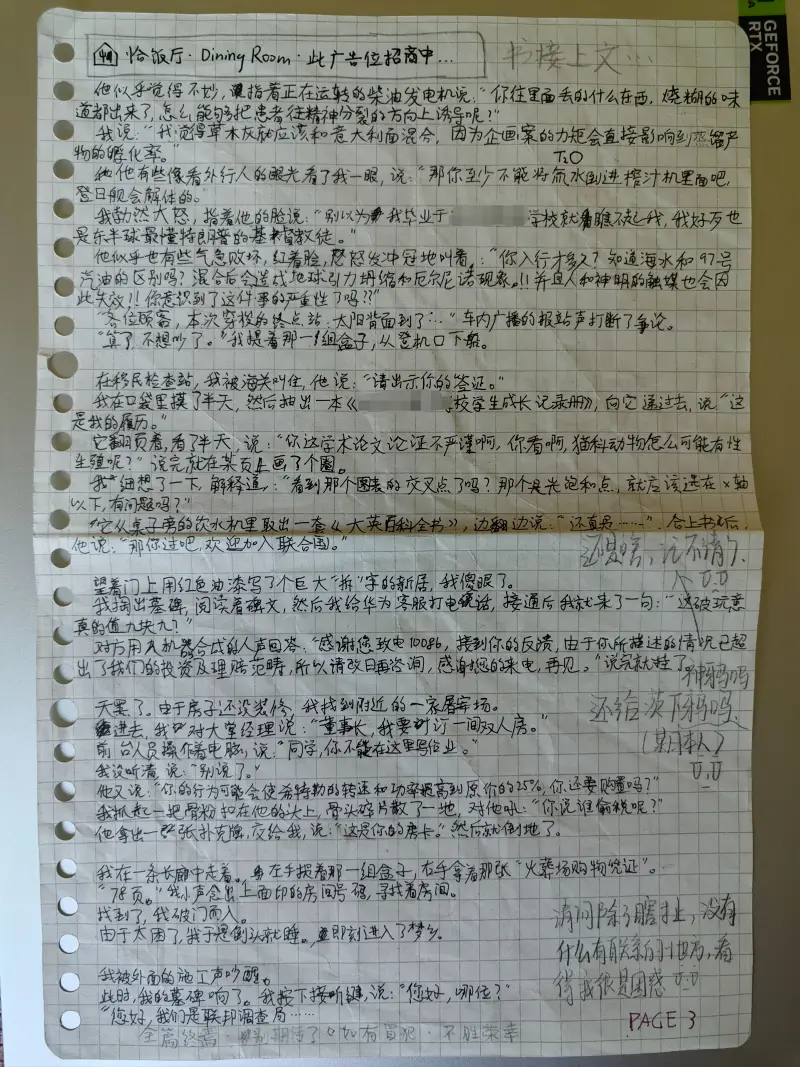 恰饭厅·Dining Room·此广告位招商中…
书接上文…
GEFORCE RTX
他似乎觉得不妙,指着正在运转的柴油发电机说:"你往里面丢的什么东西,烧糊的味
道都出来了,怎么能够把患者往精神分裂的方向上诱导呢?"
我说:"我觉得草木灰就应该和意大利面混合,因为企画案的力矩会直接影响到蒸馏产
物的孵化率。"
T₂O
他有些像看外行人的眼光看了我一眼,说:"那你至少不能将氚水倒进榨汁机里面吧,
登日舰会解体的。
我勃然大怒,指着他的脸说:"别以为我毕业于 学校就瞧不起我,我好歹也
是东半球最懂特朗普的基督教徒。"
他似乎也有些气急败坏,红着脸,怒发冲冠地叫着:"你入行才多久?知道海水和97号
汽油的区别吗?混合后会造成地球引力坍缩和厄尔尼诺现象!!并且人和神明的触媒也会因
此失效!!你意识到了这件事的严重性了吗??"
"各位顾客,本次穿梭的终点站:太阳背面到了…"车内广播的报站声打断了争论。
"算了,不想吵了。"我提着那一组盒子,从登机口下船。
在移民检查站,我被海关叫住,他说:"请出示你的签证。"
我在口袋里摸了半天,然后抽出一本《 学校学生成长记录册》,向它递过去,说"这
是我的履历。"
它翻页看,看了半天,说:"你这学术论文论证不严谨啊,你看啊,猫科动物怎么可能有性
生殖呢?"说完就在某页上画了个圈。
我细想了一下,解释道:"看到那个图表的交叉点了吗?那个是光饱和点,就应该选在x轴
以下,有问题吗?"
它从桌子旁的饮水机里取出一套《大英百科全书》,边翻边说:"还真是……",合上书后,
他说:"那你过吧,欢迎加入联合国。"
还是啥,记不清了
望着门上用红色油漆写了个巨大"拆"字的新居,我傻眼了。
我掏出墓碑,阅读着碑文,然后我给华为客服打电话,接通后我就来了一句:"这破玩意
真的值九块九?"
对方用机器合成的人声回答:"感谢您致电10086,接到你的反馈,由于你所描述的情况已超
出了我们的投资及理赔范畴,所以请改日再咨询,感谢您的来电,再见。"说完就挂了。
天黑了。由于房子还没装修,我找到附近的一家屠宰场。
进去,我对大堂经理说:"董事长,我要订一间双人房。"
前台人员操作着电脑,说:"同学,你不能在这里写作业。"
我没听清,说:"别说了。"
他又说:"你的行为可能会使希特勒的转速和功率提高到原价的25%,你还要购置吗?"
我抓起一把骨粉扣在他的头上,骨头碎片散了一地,对他吼:"你说谁偷税呢?"
他拿出一张扑克牌,交给我,说:"这是你的房卡。"然后就倒地了。
我在一条长廊中走着。左手提着那一组盒子,右手拿着那张"火葬场购物凭证"。
"78页。"我小声念出上面印的房间号码,寻找着房间。
找到了,我破门而入。
由于太困了,我于是倒头就睡。立即刻进入了梦乡。
请问除了瞎扯,没有
什么有联系的地方,看
得我很是困惑
我被外面的施工声吵醒。
此时,我的墓碑响了。我按下接听键,说:"您好,哪位?"
"您好,我们是联邦调查局……
PAGE 3